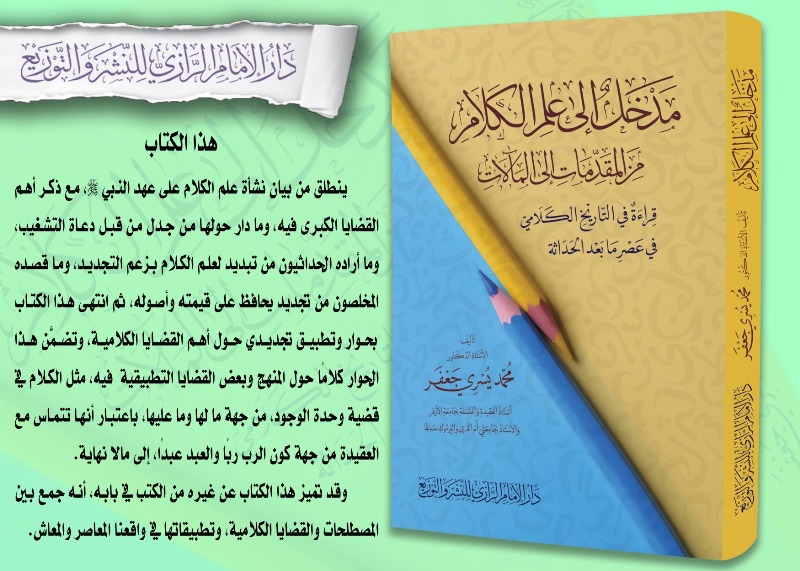 دار الإمام الرازي للنشر والتوزيع
هذا الكتاب
ينطلق من بيان نشأة علم الكلام على عهد النبي ﷺ، مع ذكر أهم
القضايا الكبرى فيه، وما دار حولها من جدل من قبل دعاة التشغيب،
وما أراده الحداثيون من تبديد لعلم الكلام بزعم التجديد، وما قصده
المخلصون من تجديد يحافظ على قيمته وأصوله، ثم انتهى هذا الكتاب
بحوار وتطبيق تجديدي حول أهم القضايا الكلامية، وتضمَّن هذا
الحوار كلامًا حول المنهج وبعض القضايا التطبيقية فيه، مثل الكلام في
قضية وحدة الوجود، من جهة ما لها وما عليها، باعتبار أنها تتماس مع
العقيدة من جهة كون الرب ربًا والعبد عبدًا، إلى مالا نهاية.
وقد تميز هذا الكتاب عن غيره من الكتب في بابه، أنه جمع بين
المصطلحات والقضايا الكلامية، وتطبيقاتها في واقعنا المعاصر والمعاش.
مَدْخَلٌ إلى عِلْمِ الكَلَامِ
مِنَ المُقَدِّمَاتِ إلى المَآلَات
قِرَاءَةٌ في التَّارِيخِ الكَلَامِيِّ
في عَصْرِ مَا بَعْدَ الحَدَاثَة
تأليف
الأستاذ الدكتور
محمد يسري جعفر
أستاذ العقيدة والفلسفة بجامعة الأزهر
والأستاذ بجامعتي أم القرى واليرموك سابقا
دار الإمام الرازي للنشر والتوزيع
مدخل إلى علم الكلام
تأليف الأستاذ الدكتور
محمد يسري جعفر
دار الإمام الرازي للنشر والتوزيع